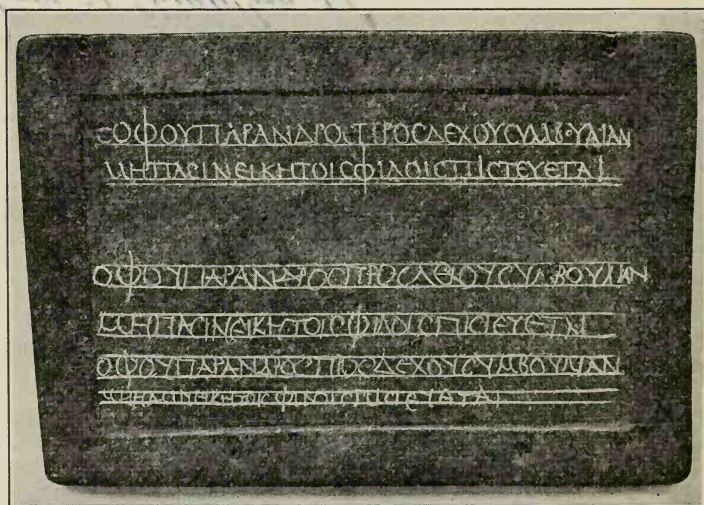 ϹΟΦΟΥΠΑΡΑΝΔΡΟϹΠΡΟϹΔΕΧΟΥϹΥΜΒΟΥΛΙΑΝ
ΜΗΠΑϹΙΝΕΙΚΗΤΟΙϹΦΙΛΟΙϹΠΙϹΤΕΥΕΤΑΙ
ΟΦΟΥΠΑΡΑΝΔΡΟϹΠΡΟϹΔΕΧΟΥϹΥΜΒΟΥΛΙΑΝ
ΜΗΠΑϹΙΝΕΙΚΗΤΟΙϹΦΙΛΟΙϹΠΙϹΤΕΥΕΤΑΙ
ΟΦΟΥΠΑΡΑΝΔΡΟϹΠΡΟϹΔΕΧΟΥϹΥΜΒΟΥΛΙΑΝ